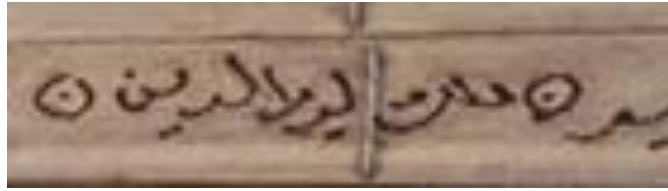 ملك يوم الدين